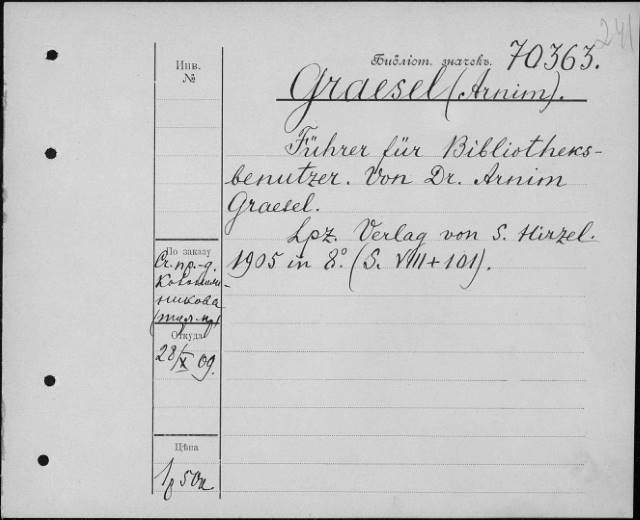 241
Инв.
№
Библіот. значекъ. 70363.
Graesel (Arnim).
Führer für Bibliotheks-
benutzer. Von Dr. Arnim
Graesel.
Lpz. Verlag von S. Hirzel.
1905 in 8°. (S. VIII+101).
По заказу
Ст. пр.-д.
никова
Откуда
28/X 09.
Цѣна
1р 50к